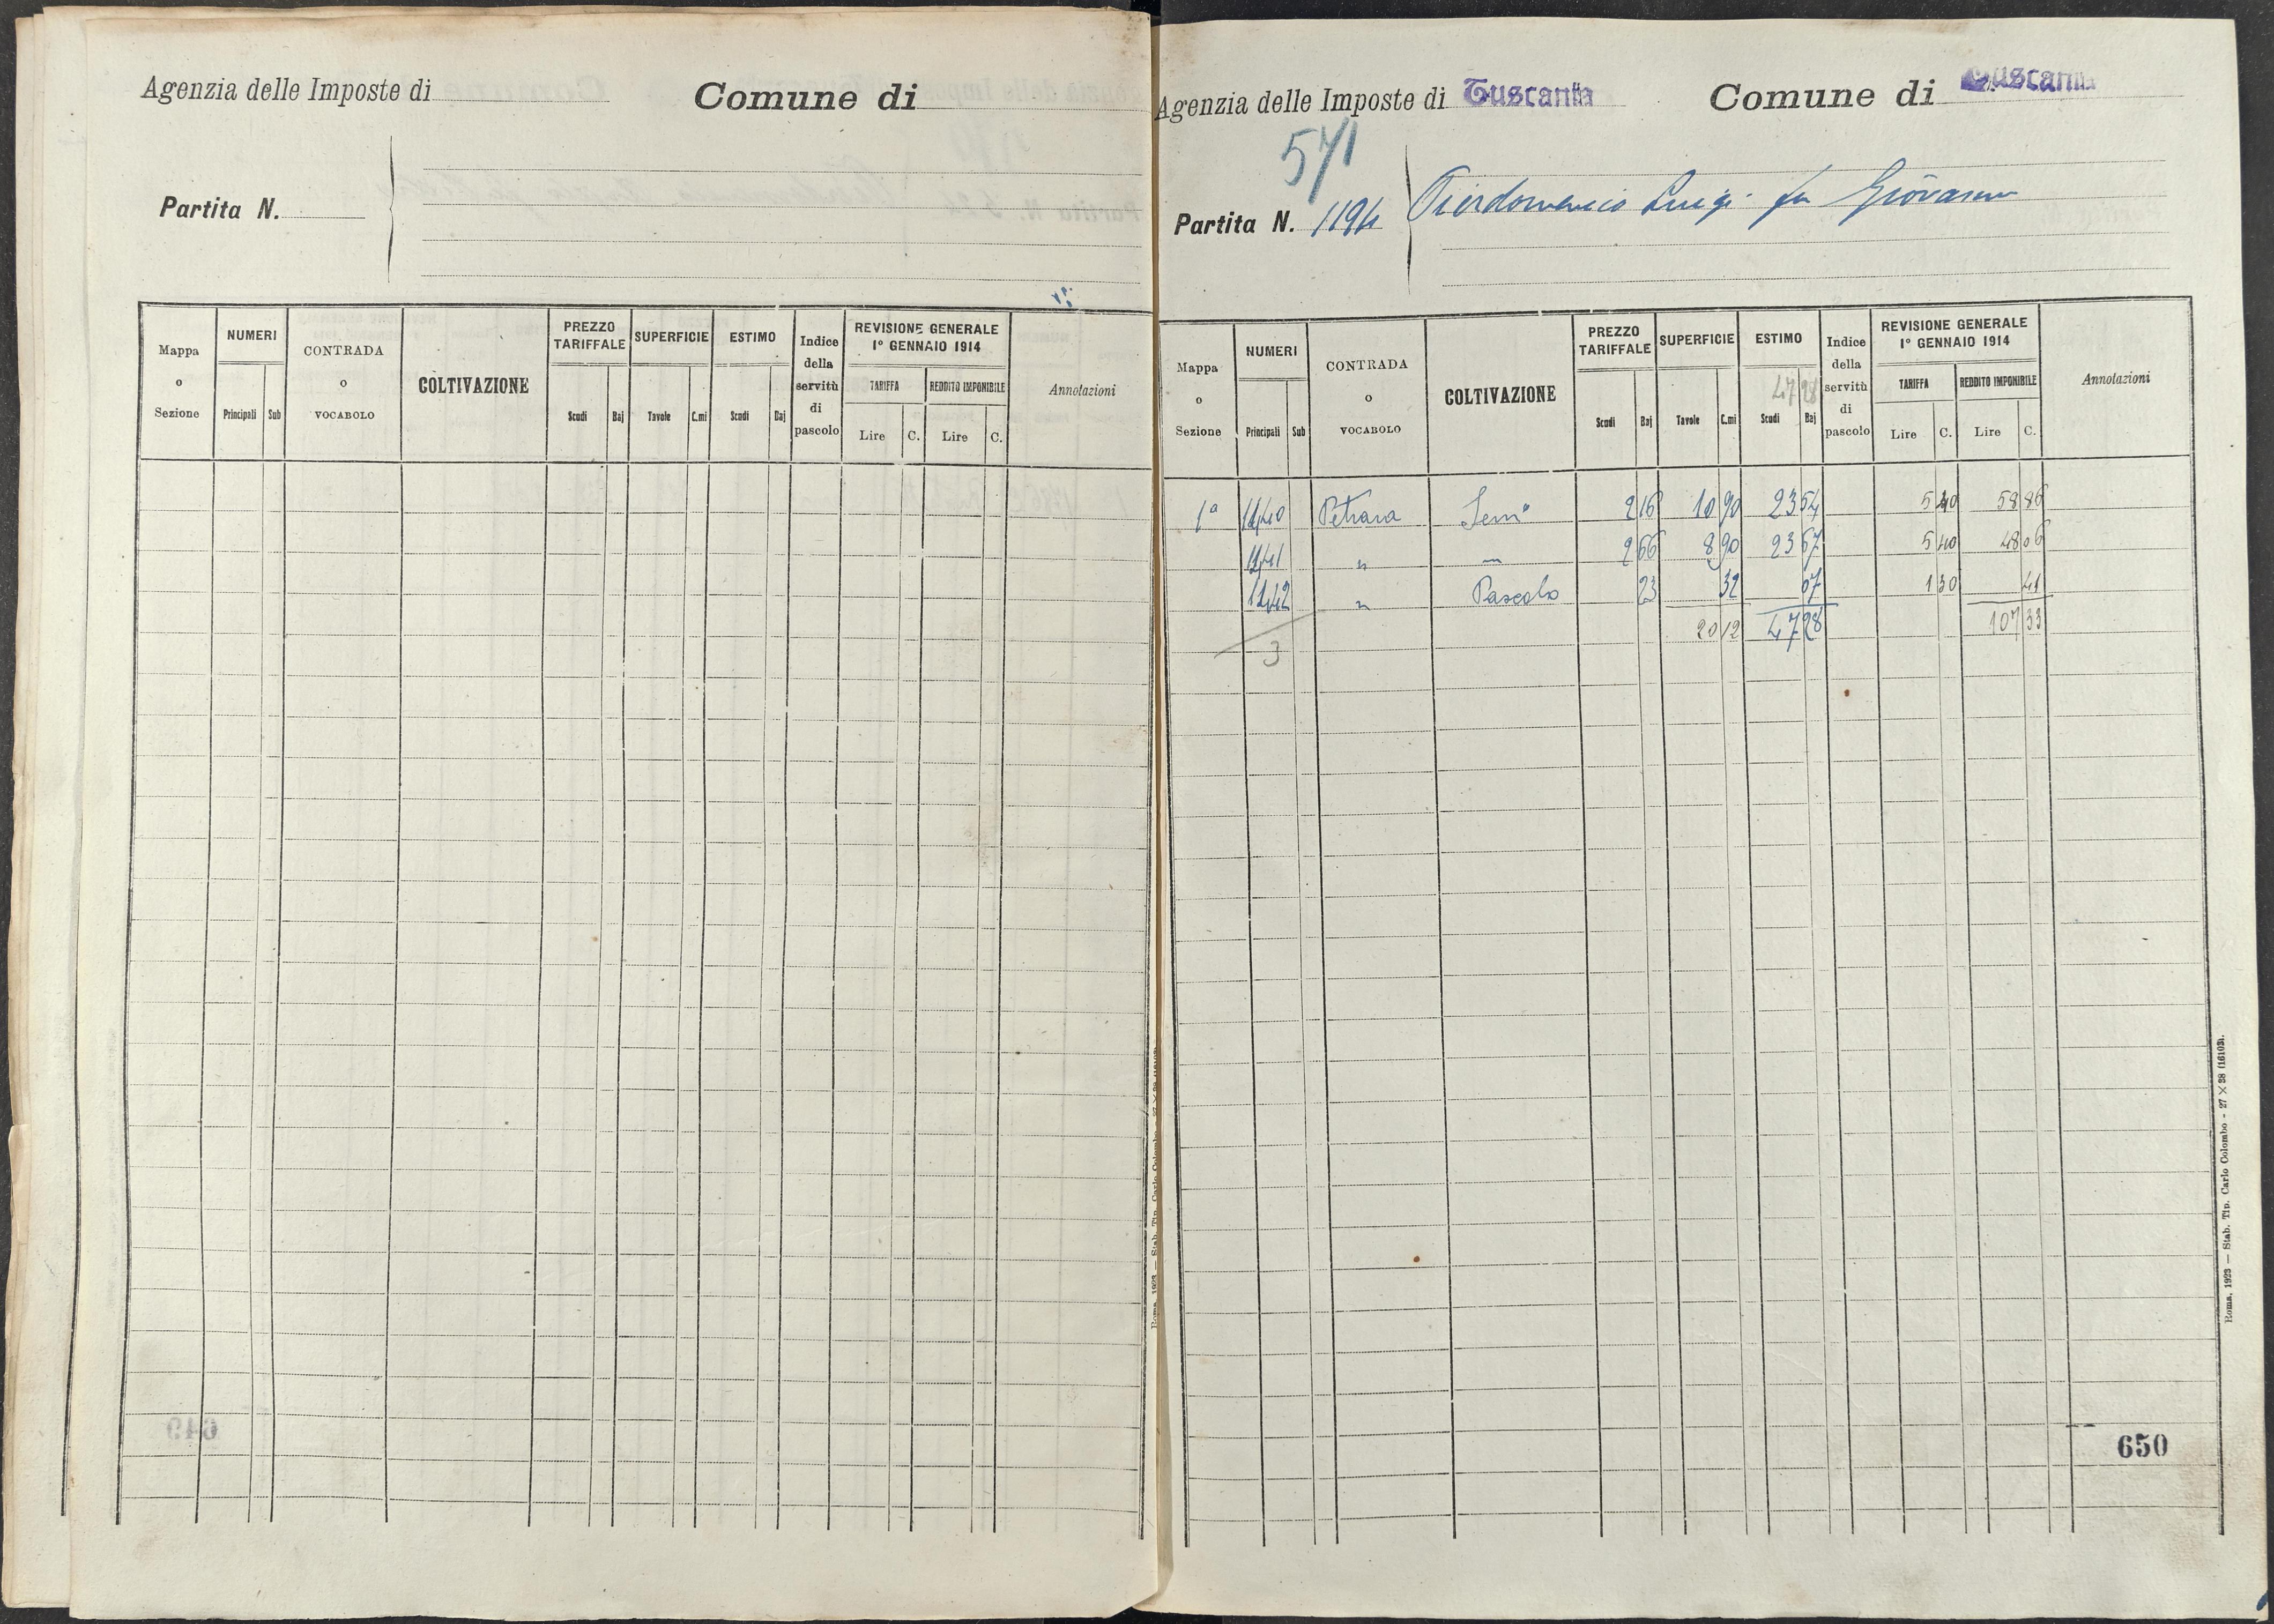 Agenzia delle Imposte di
Comune di
Partita N.
Mappa o Sezione
NUMERI
Principali Sub
CONTRADA o VOCABOLO
COLTIVAZIONE
PREZZO TARIFFALE
Scudi Baj
SUPERFICIE
Tavole C.mi
ESTIMO
Scudi Baj
Indice della servitù di pascolo
REVISIONE GENERALE
1° GENNAIO 1914
TARIFFA REDDITO IMPONIBILE
Lire C. Lire C.
Annotazioni
649
Agenzia delle Imposte di Tuscania
Comune di Tuscania
571
Partita N. 1194 Pierdomenico Luigi fu Giovanni
Mappa o Sezione
NUMERI
Principali Sub
CONTRADA o VOCABOLO
COLTIVAZIONE
PREZZO TARIFFALE
Scudi Baj
SUPERFICIE
Tavole C.mi
ESTIMO
47 28
Scudi Baj
Indice della servitù di pascolo
REVISIONE GENERALE
1° GENNAIO 1914
TARIFFA REDDITO IMPONIBILE
Lire C. Lire C.
Annotazioni
1a 1140 Petrara Semo 2 16 10 90 23 54 5 40 58 86
1141 " " 2 66 8 90 23 67 5 40 48 06
1142 " Pascolo 23 32 07 1 30 41
3 20 12 47 28 107 33
650
Roma, 1923 — Stab. Tip. Carlo Colombo - 27 × 38 (16102).